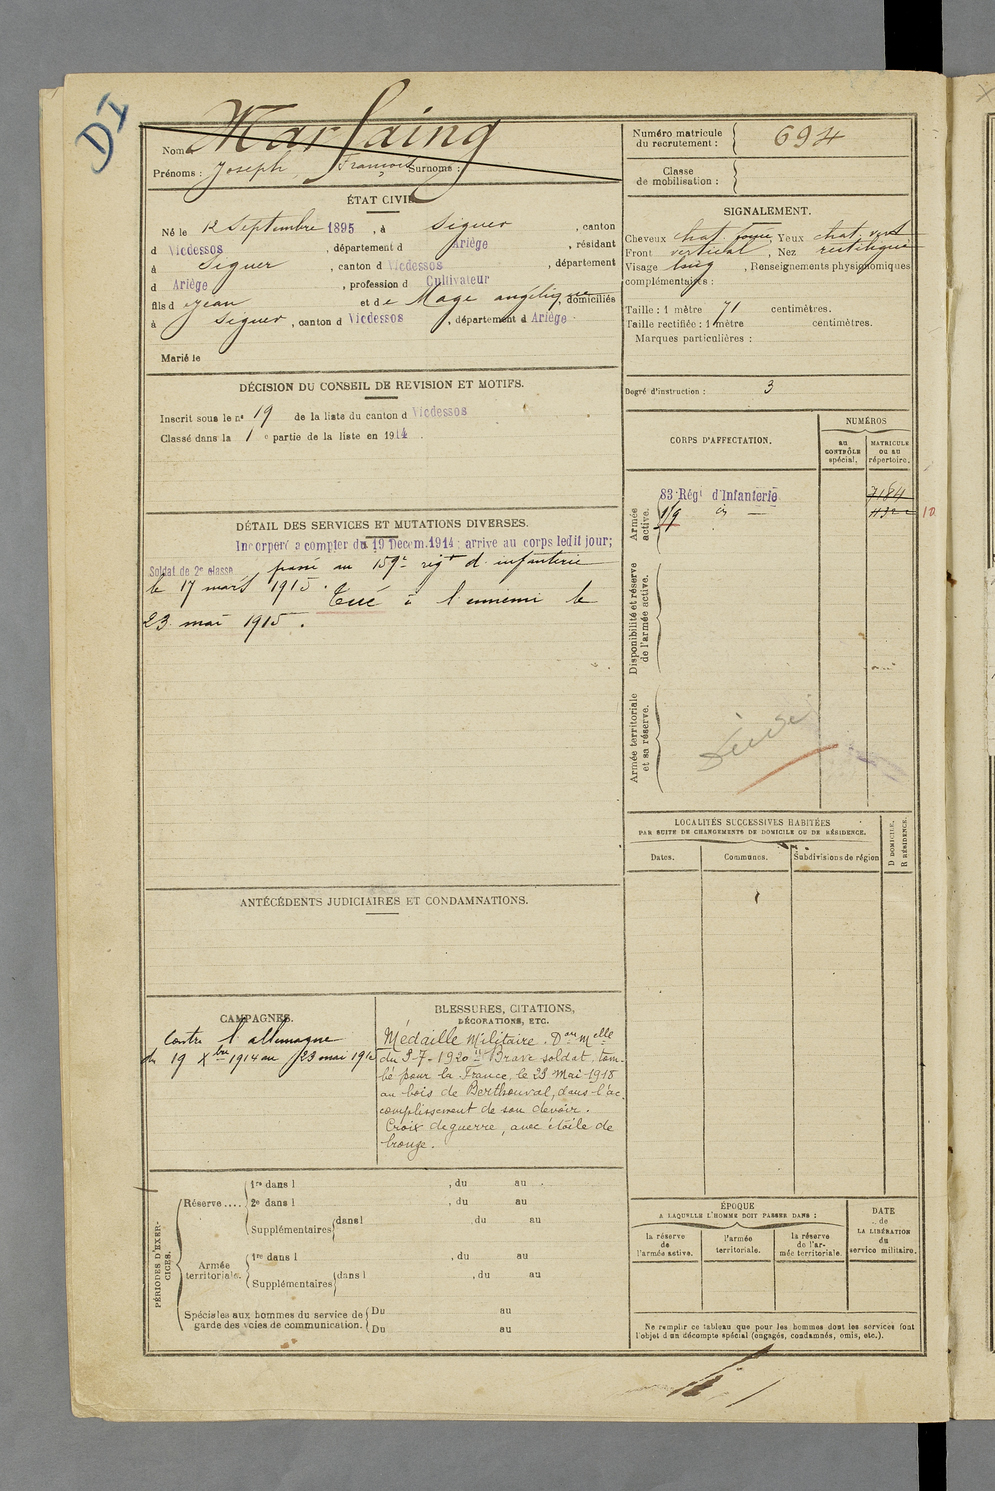 DI
Nom : Marfaing
Prénoms : Joseph, François Surnoms :
ÉTAT CIVIL
Né le 12 Septembre 1895, à Siguer, canton
d Vicdessos, département d Ariège, résidant
à Siguer, canton d Vicdessos, département
d Ariège, profession d Cultivateur
fils d e Jean et d e Mage angélique, domiciliés
à Siguer, canton d Vicdessos, département d Ariège
Marié le
DÉCISION DU CONSEIL DE REVISION ET MOTIFS.
Inscrit sous le n° 19 de la liste du canton d Vicdessos
Classé dans la 1 e partie de la liste en 1914.
DÉTAIL DES SERVICES ET MUTATIONS DIVERSES.
Incorporé a compter du 19 Decem. 1914 ; arrive au corps ledit jour;
Soldat de 2e classe passé au 159e rgt d'infanterie
le 17 mars 1915. Tué à l'ennemi le
23 mai 1915.
ANTÉCÉDENTS JUDICIAIRES ET CONDAMNATIONS.
CAMPAGNES.
Contre l'allemagne
du 19 Xbre 1914 au 23 mai 1915
BLESSURES, CITATIONS,
DÉCORATIONS, ETC.
Médaille Militaire. Don Melle
du 9-7-1920 "Brave soldat, tom-
bé pour la France, le 23 Mai 1915
au bois de Berthonval, dans l'ac-
complissement de son devoir.
Croix de guerre, avec étoile de
bronze.
PÉRIODES D'EXERCICES.
Réserve....
1re dans l , du au
2e dans l , du au
Supplémentaires dans l , du au
Armée territoriale.
1re dans l , du au
Supplémentaires dans l , du au
Spéciales aux hommes du service de
garde des voies de communication.
Du au
Du au
Numéro matricule
du recrutement : 694
Classe
de mobilisation :
SIGNALEMENT.
Cheveux chat. foncé, Yeux chat. vert
Front vertical, Nez rectiligne
Visage long, Renseignements physionomiques
complémentaires :
Taille : 1 mètre 71 centimètres.
Taille rectifiée : 1 mètre centimètres.
Marques particulières :
Degré d'instruction : 3
CORPS D'AFFECTATION.
NUMÉROS
au
CONTRÔLE
spécial.
MATRICULE
ou au
répertoire.
Armée
active.
83e Régt d'Infanterie 7184
159
Disponibilité et réserve
de l'armée active.
Armée territoriale
et sa réserve.
LOCALITÉS SUCCESSIVES HABITÉES
PAR SUITE DE CHANGEMENTS DE DOMICILE OU DE RÉSIDENCE.
D DOMICILE.
R RÉSIDENCE.
Dates.
Communes.
Subdivisions de région
ÉPOQUE
A LAQUELLE L'HOMME DOIT PASSER DANS :
la réserve
de
l'armée active.
l'armée
territoriale.
la réserve
de l'ar-
mée territoriale.
DATE
de
LA LIBÉRATION
du
service militaire.
Ne remplir ce tableau que pour les hommes dont les services font
l'objet d'un décompte spécial (engagés, condamnés, omis, etc.).